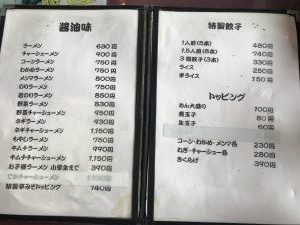 醤油味
ラーメン 630円
チャーシューメン 900円
コーンラーメン 750円
わかめラーメン 750円
メンマラーメン 800円
のりラーメン 750円
岩のりラーメン 850円
野菜ラーメン 830円
野菜チャーシューメン
ネギラーメン 930円
ネギチャーシューメン 1,150円
もやしラーメン 750円
キムチラーメン 900円
キムチチャーシューメン 1,150円
お子様ラーメン 小学生まで 390円
特製辛みそトッピング
特製餃子
1人前(5本) 480円
1.5人前(8本) 740円
3個餃子(3本) 330円
ライス 250円
半ライス 150円
トッピング
めん大盛り 100円
煮玉子 80円
生玉子 60円
コーン・わかめ・メンマ各 230円
ねぎ・チャーシュー各 280円
きくらげ 390円